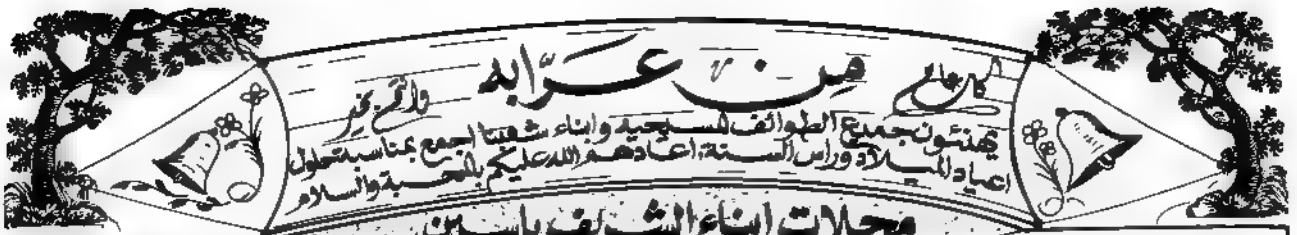 كل عام
من عرّابه
وانتم بخير
يهنئون جميع الطوائف المسيحية وابناء شعبنا اجمع بمناسبة حلول
اعياد الميلاد وراس السنة، اعادهم الله عليكم بالمحبة والسلام
محلات ابناء الشريف ياسين